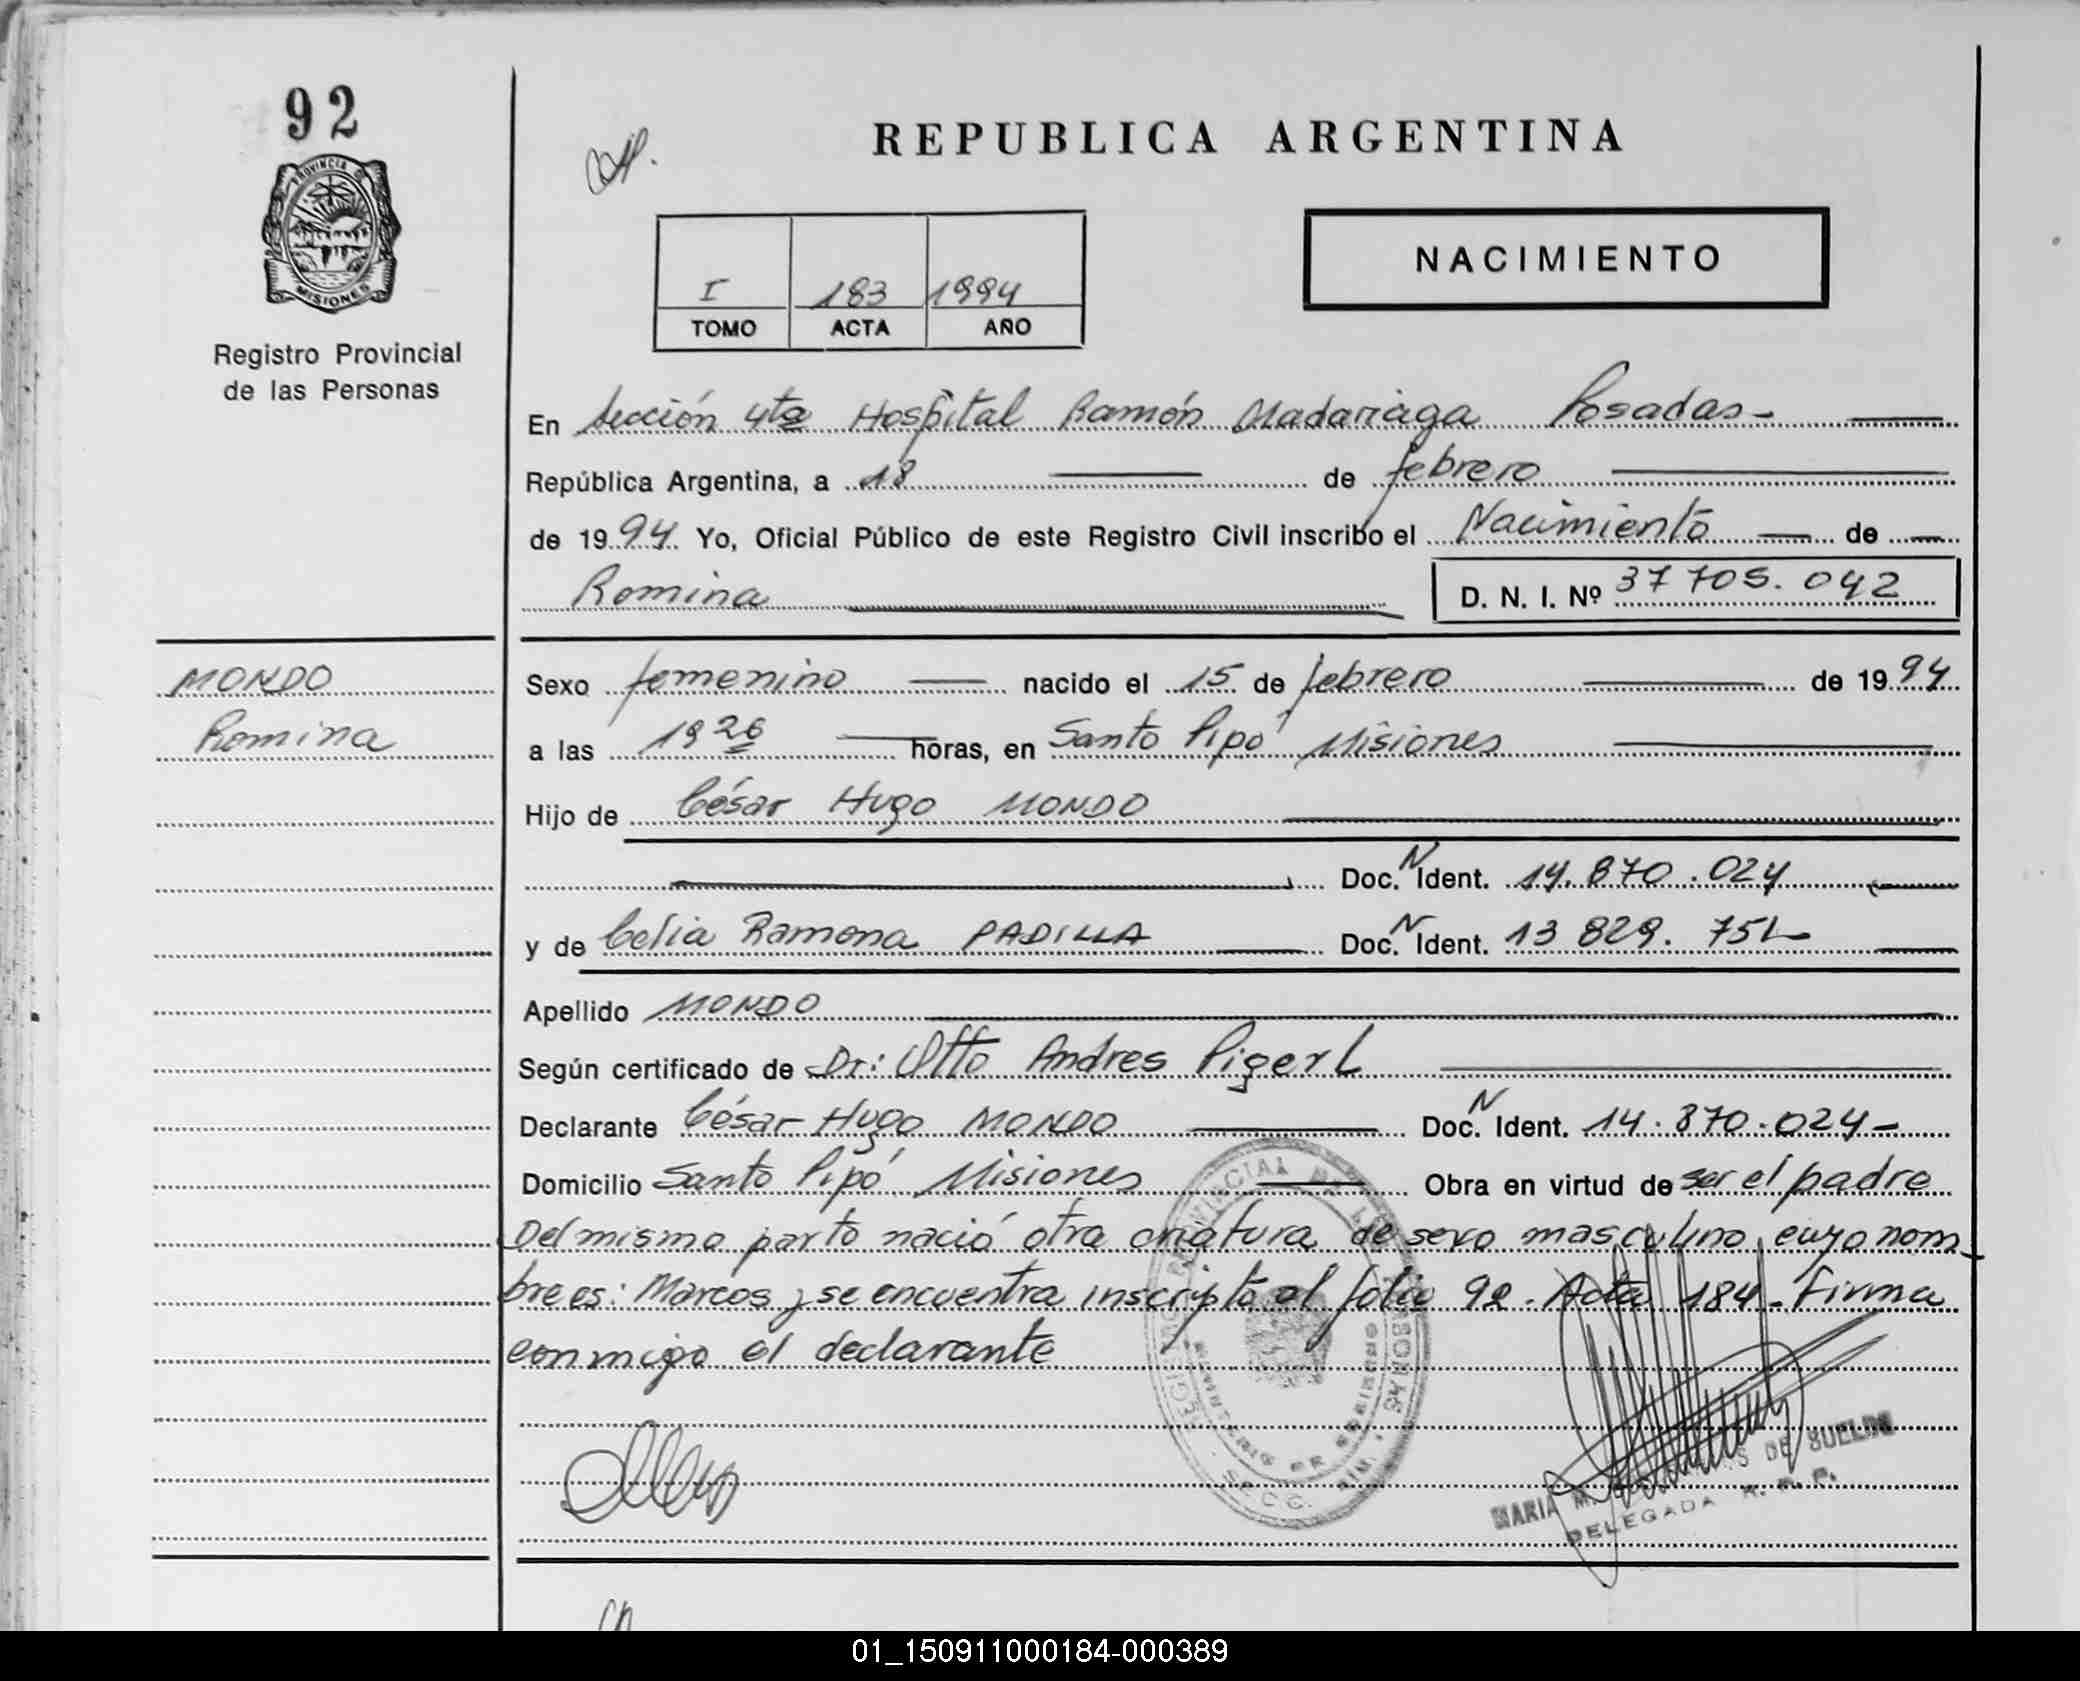 92
REPUBLICA ARGENTINA
PROVINCIA DE
MISIONES
Registro Provincial
de las Personas
I 183 1994
TOMO ACTA AÑO
NACIMIENTO
En Sección 4ta Hospital Ramón Madariaga Posadas-
República Argentina, a 18 de febrero
de 1994 Yo, Oficial Público de este Registro Civil inscribo el Nacimiento de
Romina D. N. I. Nº 37 705.042
MONDO
Romina
Sexo femenino nacido el 15 de febrero de 1994
a las 19 26 horas, en Santo Pipó Misiones
Hijo de César Hugo MONDO
Doc. N Ident. 14.870.024
y de Celia Ramona PADILLA Doc. N Ident. 13 829.751
Apellido MONDO
Según certificado de Dr: Otto Andres Pigerl
Declarante César Hugo MONDO Doc. N Ident. 14.870.024-
Domicilio Santo Pipó Misiones Obra en virtud de ser el padre
Del mismo parto nació otra criatura de sexo masculino, cuyo nom-
bre es: Marcos y se encuentra inscripto al folio 92. Acta 184. Firma
conmigo el declarante
REGISTRO PROVINCIAL DE LAS PERSONAS
MARIA M. DE SUELDO
DELEGADA R. P. P.
01_150911000184-000389